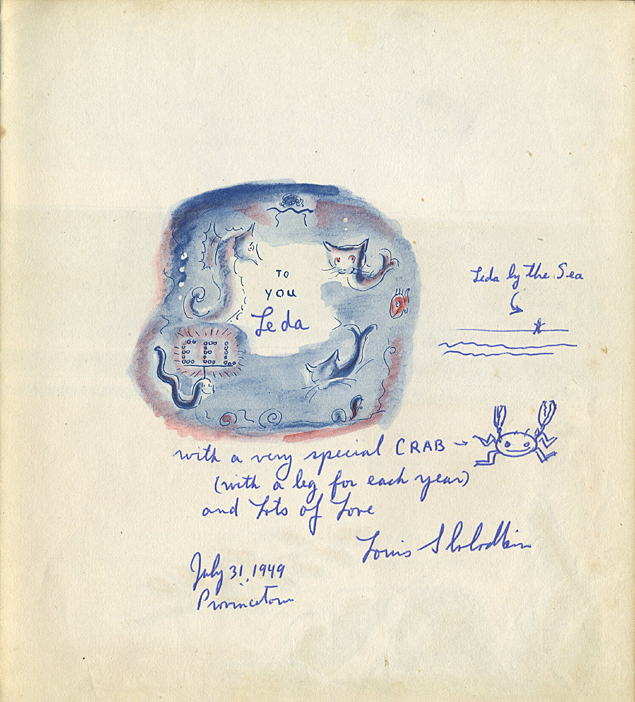 TO
you
Leda
EEL
Leda by the Sea
with a very special CRAB
(with a leg for each year)
and Lots of Love
Louis Slobodkin
July 31, 1949
Provincetown